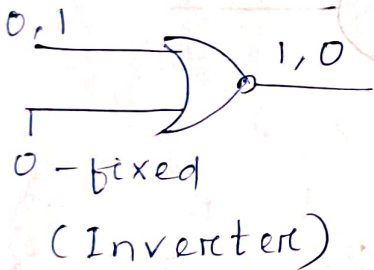 0, 1
1, 0
0 - fixed
(Inverter)